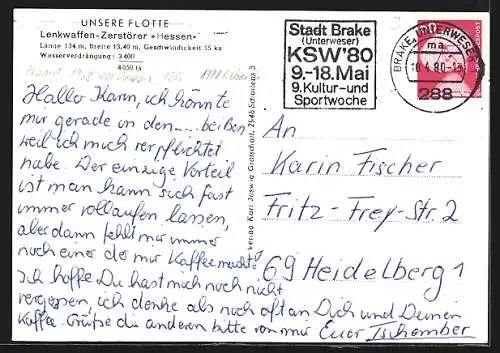 UNSERE FLOTTE
Lenkwaffen-Zerstörer »Hessen«
Länge 134 m, Breite 13,40 m, Geschwindigkeit 35 kn
Wasserverdrängung: 3 400
4050 ts
Hallo Karin, ich könnte
mir gerade in den .... beißen
weil ich mich verpflichtet
habe. Der einzige Vorteil
ist man kann sich fast
immer vollaufen lassen,
aber dann fehlt mir immer
noch einer der mir Kaffee macht.
Ich hoffe Du hast mich noch nicht
vergessen, ich denke als noch oft an Dich und Deinen
Kaffee. Grüße die anderen bitte von mir Euer
Verlag Karl Jaswig Gratschaft, 2948 Schortens 3
Stadt Brake
(Unterweser)
KSW'80
9.-18. Mai
9. Kultur- und
Sportwoche
BRAKE, UNTERWESER
ma
10.4.80-13
288
An
Karin Fischer
Fritz-Frey-Str. 2
69 Heidelberg 1